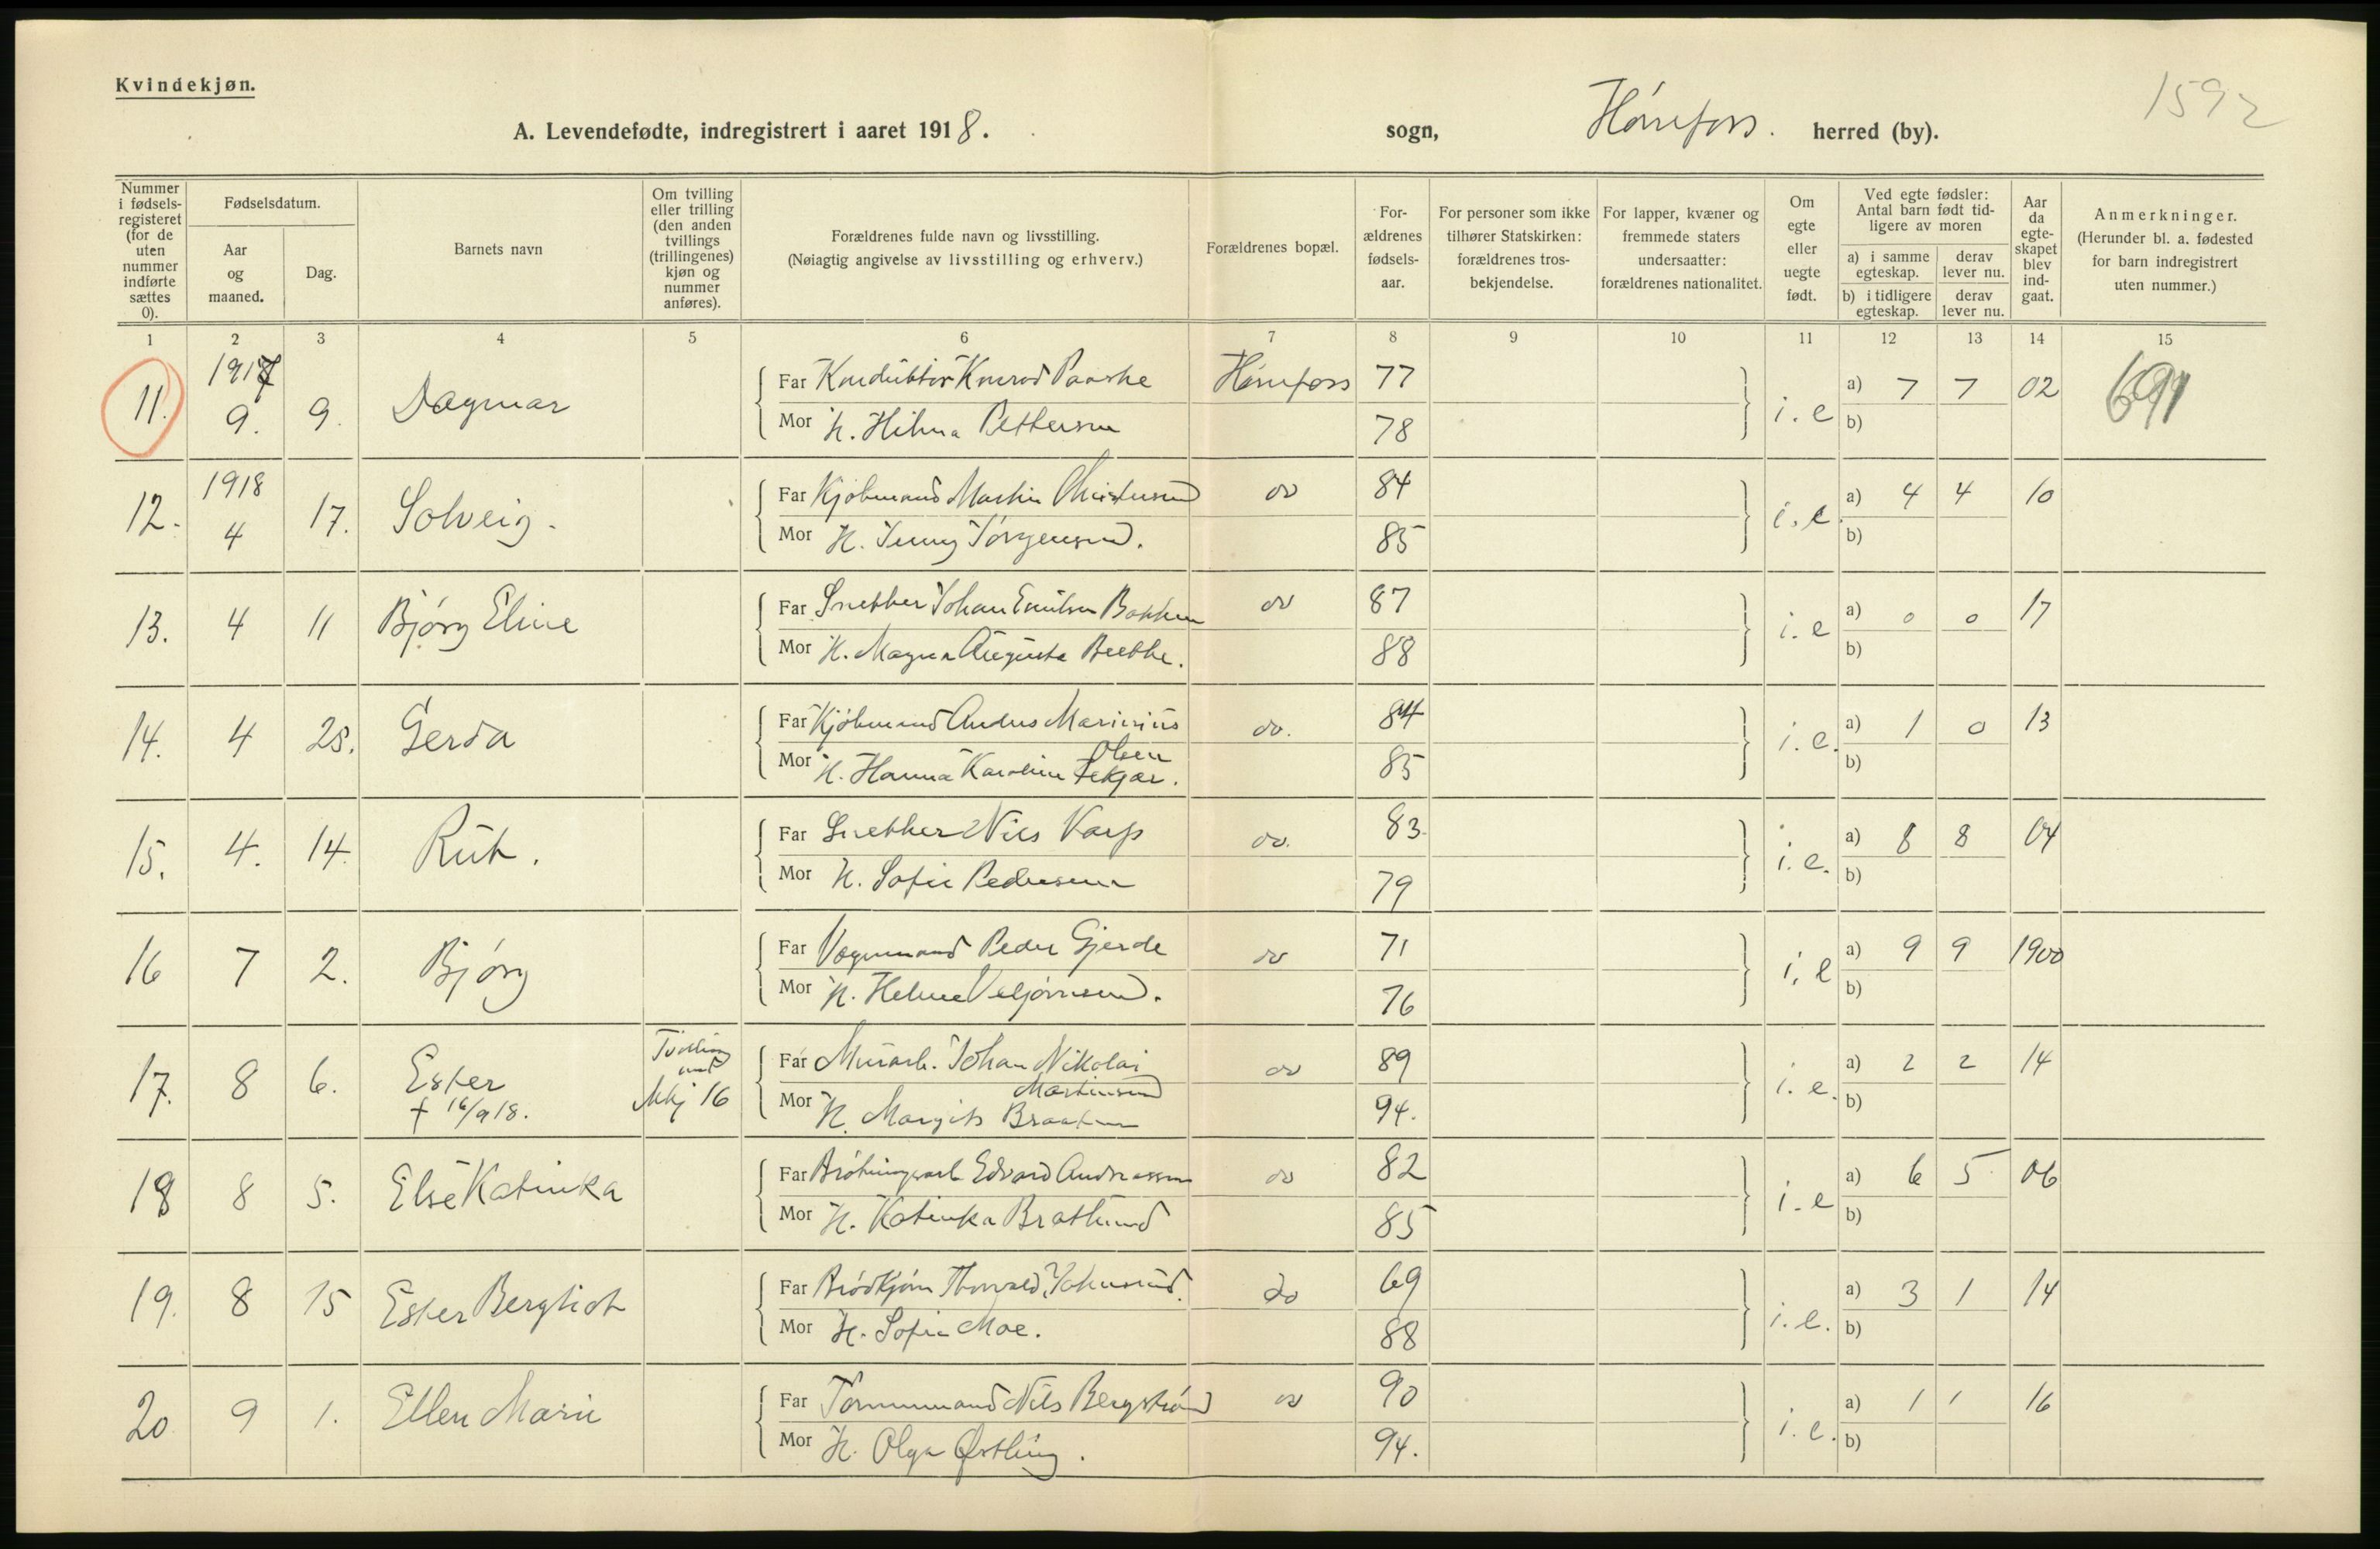 Kvindekjøn.
1592
A. Levendefødte, indregistrert i aaret 1918.
sogn, Hønefoss. herred (by).
Nummer i fødsels-registeret (for de uten nummer indførte sættes 0).
Fødselsdatum.
Aar og maaned.
Dag.
Barnets navn
Om tvilling eller trilling (den anden tvillings (trillingenes) kjøn og nummer anføres).
Forældrenes fulde navn og livsstilling.
(Nøiagtig angivelse av livsstilling og erhverv.)
Forældrenes bopæl.
For-ældrenes fødsels-aar.
For personer som ikke tilhører Statskirken: forældrenes tros-bekjendelse.
For lapper, kvæner og fremmede staters undersaatter: forældrenes nationalitet.
Om egte eller uegte født.
Ved egte fødsler: Antal barn født tid-ligere av moren
a) i samme egteskap.
derav lever nu.
b) i tidligere egteskap.
derav lever nu.
Aar da egte-skapet blev ind-gaat.
Anmerkninger.
(Herunder bl. a. fødested for barn indregistrert uten nummer.)
1 2 3 4 5 6 7 8 9 10 11 12 13 14 15
11. 1917 9. 9. Dagmar
Far Konduktør Konrad Paaske Hønefoss 77
Mor H. Hilma Pettersen 78
i. e a) 7 7 02 691
b)
12. 1918 4 17. Solveig.
Far Kjøbmand Martin Christensen do 84
Mor H. Jenny Jørgensen. 85
i. e. a) 4 4 10
b)
13. 4 11 Bjørg Eline
Far Snekker Johan Emilsen Bakken do 87
Mor H. Magna Augusta 88
i. e a) 0 0 17
b)
14. 4 28. Gerda
Far Kjøbmand Anders Marinius Olsen do. 84
Mor H. Hanna Karoline 85
i. e. a) 1 0 13
b)
15. 4. 14. Rut.
Far Snekker Nils Varp do. 83
Mor H. Sofie Pedersen 79
i. e. a) 8 8 04
b)
16 7 2. Bjørg
Far Vognmand Peder Gjerde do 71
Mor H. Helene 76
i. e a) 9 9 1900
b)
17. 8 6. Ester † 16/9 18. Tvilling med Mkj 16
Far Murarb. Johan Nikolai Martinsen do 89
Mor H. Margit Braaten 94.
i. e. a) 2 2 14
b)
18 8 5. Else Katinka
Far Edvard Andreassen do 82
Mor H. Katinka Bratlund 85
i. e a) 6 5 06
b)
19. 8 15 Ester Bergliot
Far Brødkjører Thorvald Johnsrud. do 69
Mor H. Sofie Moe. 88
i. e. a) 3 1 14
b)
20 9 1. Ellen Marie
Far Tømmermand Nils Bergstrøm do 90
Mor H. Olga Østling. 94.
i. e. a) 1 1 16
b)